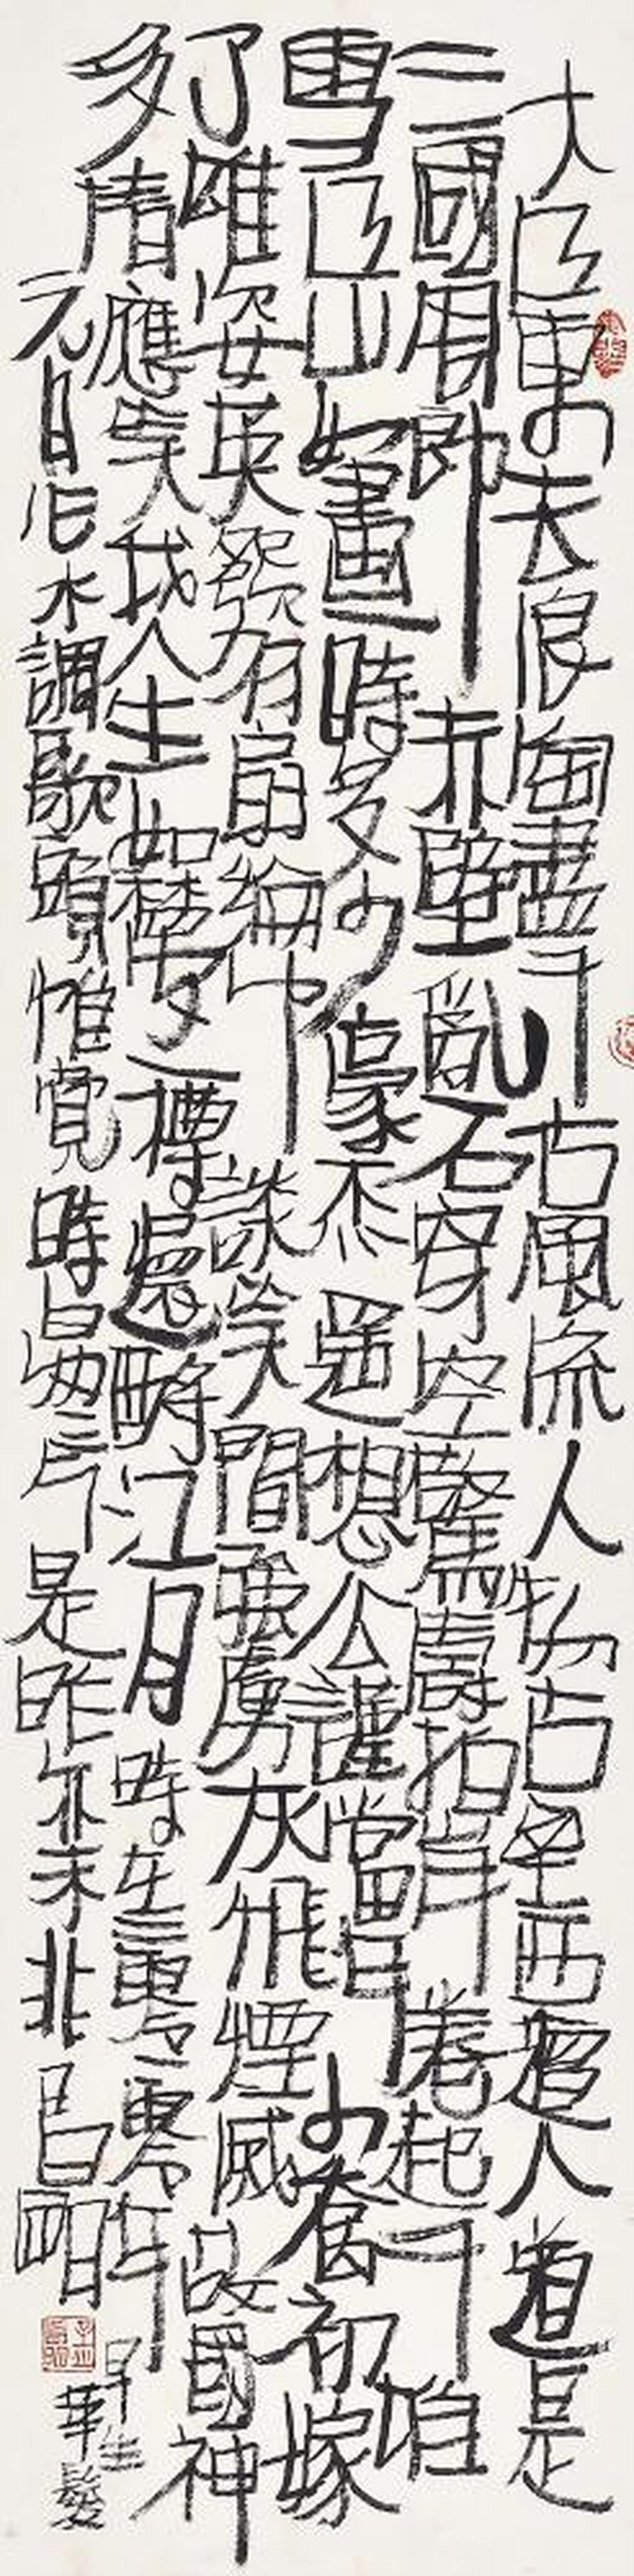 大江東去浪淘盡千古風流人物古壘西邊人道是
三國周郎赤壁亂石穿空驚濤拍岸捲起千堆
雪江山如畫時多少豪杰遥想公謹當年小喬初嫁
了雄姿英發羽扇綸巾談笑間强虜灰飛煙滅故國神
多情應笑我人生如夢一樽還酹江月時在二零二零年
早生華髮
元月作水調歌頭惟覺時是昨